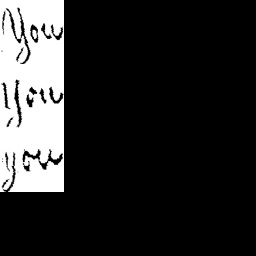 You
You
you